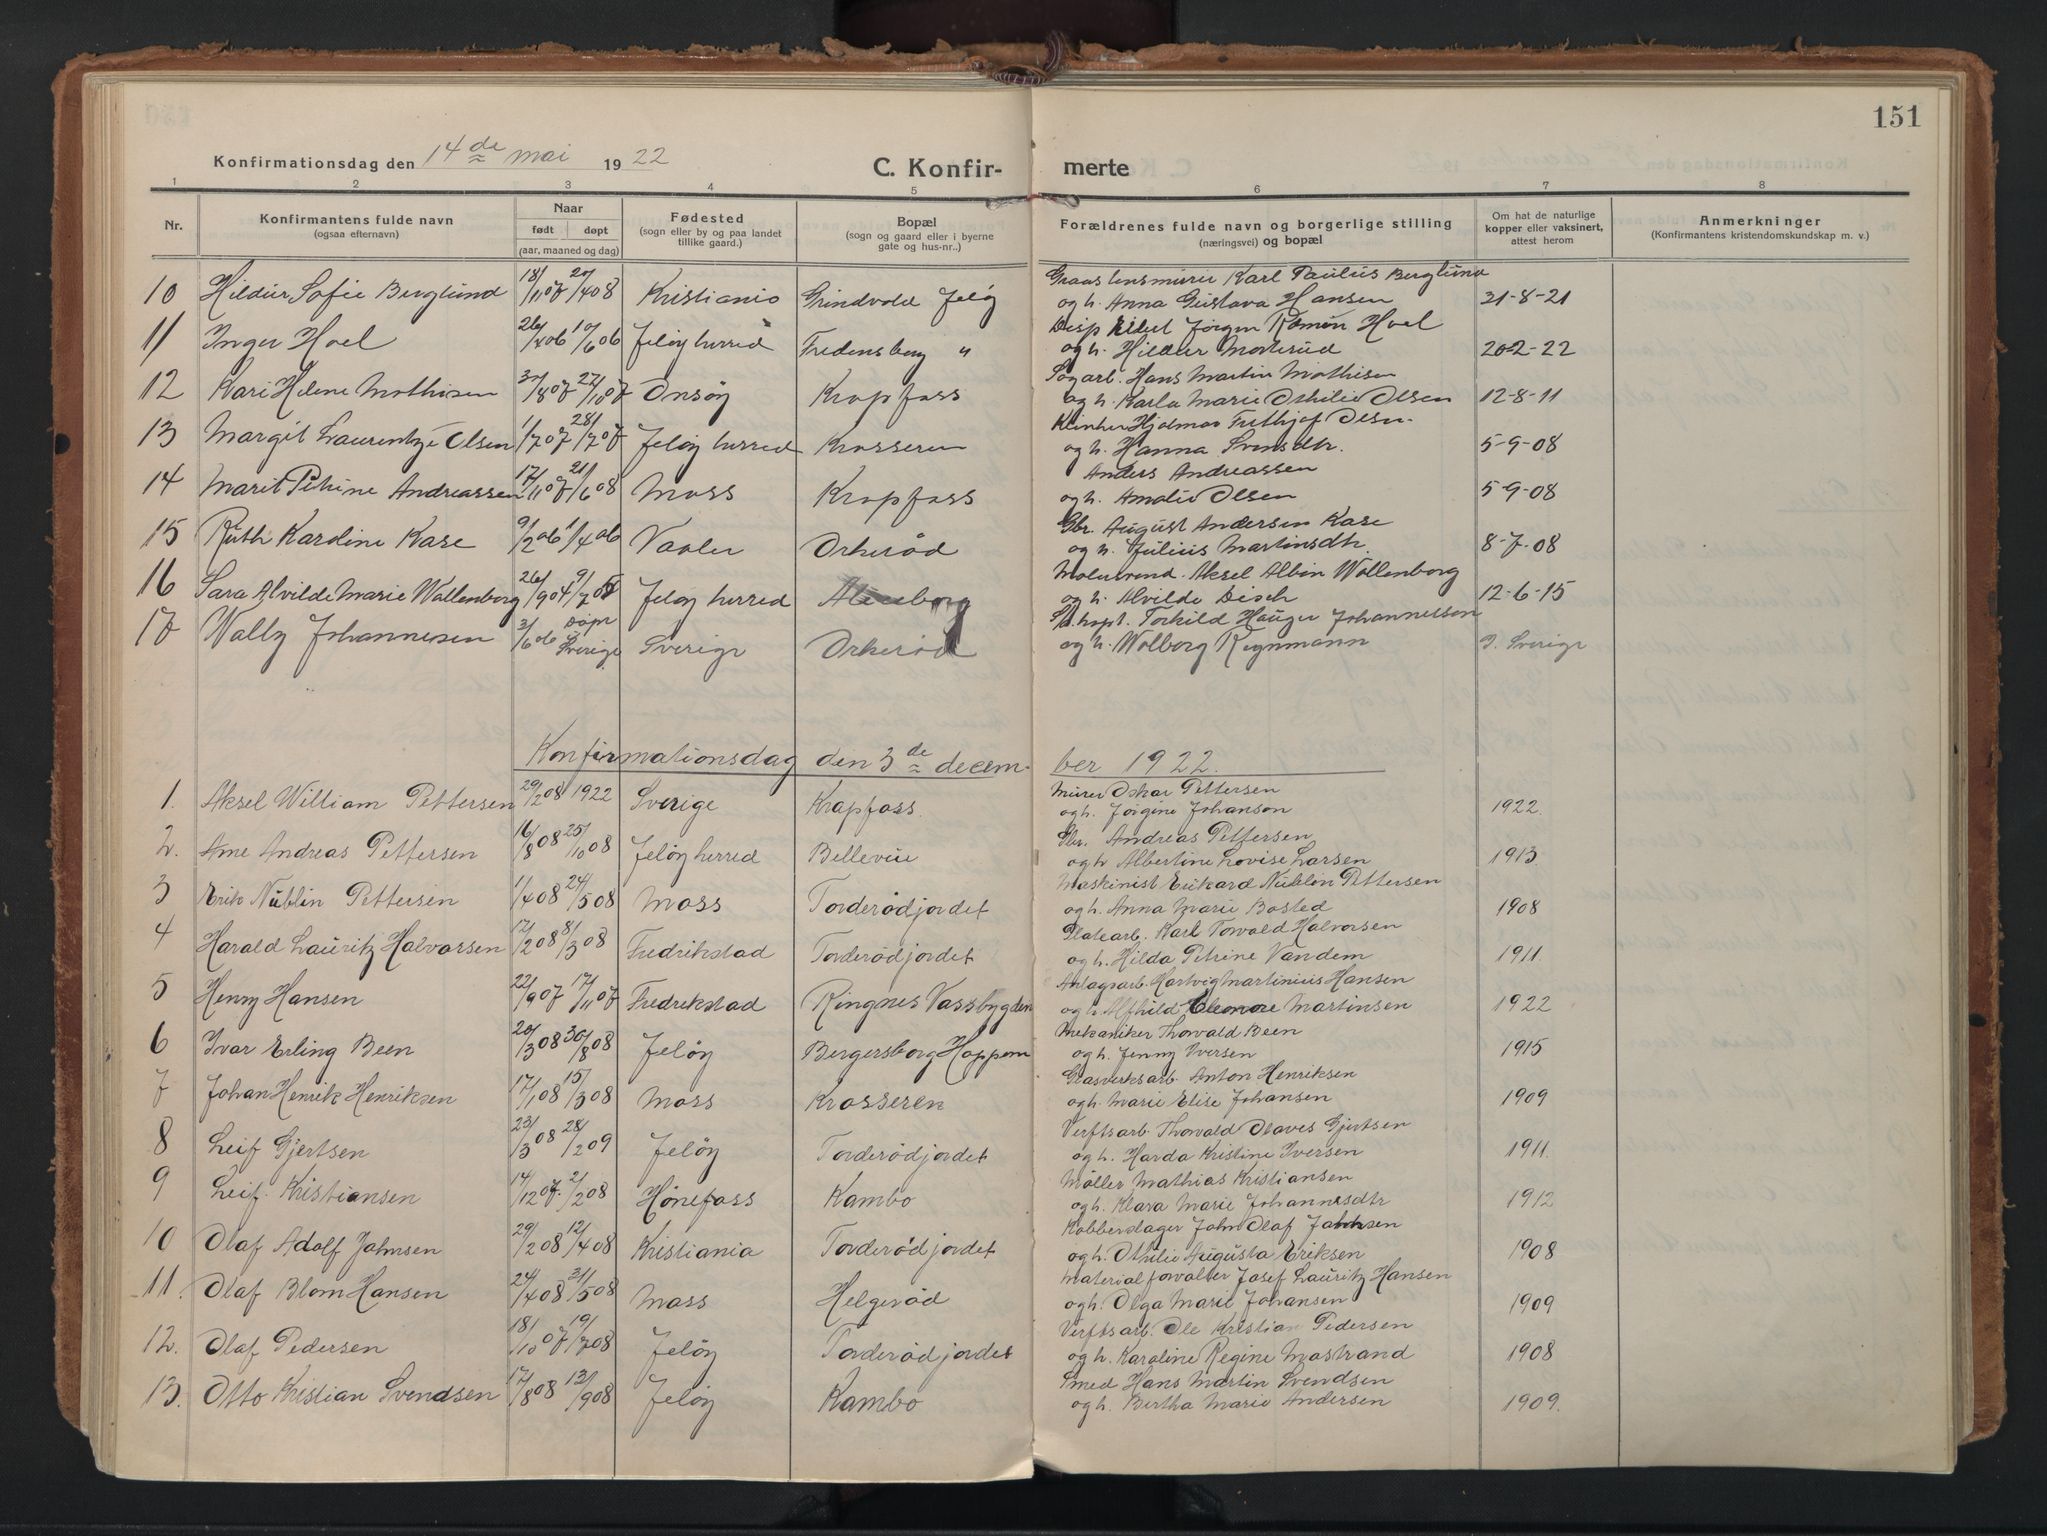 151
Konfirmationsdag den 14de mai 1922 C. Konfir- merte
1 2 3 4 5 6 7 8
Nr. Konfirmantens fulde navn (ogsaa efternavn) Naar født døpt (aar, maaned og dag) Fødested (sogn eller by og paa landet tillike gaard.) Bopæl (sogn og gaard eller i byerne gate og hus-nr.) Forældrenes fulde navn og borgerlige stilling (næringsvei) og bopæl Om hat de naturlige kopper eller vaksinert, attest herom Anmerkninger (Konfirmantens kristendomskundskap m. v.)
10 Hildur Sofie Berglund 18/11 07 20/4 08 Kristiania Grindvold Jeløy Graastensmurer Karl Paulus Berglund
og h. Anna Gustava Hansen 31-8-21
11 Inger Hoel 26/4 06 10/6 06 Jeløy herred Fredensberg " Disp Eilert Jørgen Ramm Hoel
og h. Hildur Mosterud 20-2-22
12 Kari Helene Mathisen 30/8 07 27/10 07 Onsøy Krapfoss Sagarb. Hans Martin Mathisen
og h. Karla Marie Othilie Olsen 12-8-11
13 Margit Laurentze Olsen 1/7 07 28/7 07 Jeløy herred Krosseren Hjalmar Frithjof Olsen
og h. Hanna Svensdtr. 5-9-08
14 Marit Petrine Andreassen 17/11 07 21/6 08 Moss Krapfoss Anders Andreassen
og h. Amalie Olsen 5-9-08
15 Ruth Karoline Kase 9/2 06 1/4 06 Vaaler Orkerød Gbr. August Andersen Kase
og h. Julius Martinsdtr 8-7-08
16 Sara Alvilde Marie Wallenborg 26/9 04 9/7 05 Jeløy herred Alenborg Aksel Albin Wallenborg
og h. Alvilde Disch 12-6-15
17 Wally Johannesen 3/6 06 døpt i Sverige Sverige Orkerød Torkild Hauger Johannessen
og h. Wolborg Regnmann I Sverige
Konfirmationsdag den 3de decem- ber 1922.
1. Aksel William Pettersen 29/2 08 1922 Sverige Krapfoss. Murer Oskar Pettersen
og h. Jørgine Johanson 1922.
2. Arne Andreas Pettersen 16/8 08 25/10 08 Jeløy herred Bellevue Gbr. Andreas Pettersen
og h Albertine Lovise Larsen 1913
3 Erik Nublin Pettersen 1/4 08 24/5 08 Moss Torderødjordet Maskinist Erikard Nublin Pettersen
og h. Anna Marie Basted 1908
4 Harald Lauritz Halvorsen 12/2 08 8/3 08 Fredrikstad Torderødjordet Platearb. Karl Torvald Halvorsen
og h. Hilda Petrine Vandem 1911.
5 Henny Hansen 22/9 07 17/11 07 Fredrikstad Ringnes Vassbygden Anlagsarb. Hartvig Martinius Hansen
og h. Alfhild Eleonore Martinsen 1922
6 Ivar Erling Been 20/3 08 30/8 08 Jeløy Bergersborg Hoppern Mekaniker Thorvald Been
og h. Jenny Iversen 1915
7 Johan Henrik Henriksen 17/1 08 15/3 08 Moss Krosseren Glasverksarb. Anton Henriksen
og h. Marie Elise Johansen 1909
8 Leif Gjertsen 23/3 08 28/2 09 Jeløy Torderødjordet Verftsarb. Thorvald Olaves Gjertsen
og h. Harda Kristine Iversen 1911.
9 Leif Kristiansen 14/12 07 2/2 08 Hønefoss Kambo Møller Mathias Kristiansen
og h. Klara Marie Johannesdtr 1912
10 Olaf Adolf Jahnsen 29/2 08 12/4 08 Kristiania Torderødjordet Kobberslager John Olaf Jahnsen
og h. Othilie Augusta Eriksen 1908
11. Olaf Blom Hansen 24/4 08 31/5 08 Moss Helgerød Materialforvalter Josef Lauritz Hansen
og h. Olga Marie Johansen 1909
12. Olaf Pedersen 18/10 07 19/7 08 Jeløy Torderødjordet Verftsarb. Ole Kristian Pedersen
og h. Karoline Regine Mostrand 1908
13. Otto Kristian Svendsen 17/8 08 13/9 08 Jeløy Kambo Smed Hans Martin Svendsen
og h. Bertha Marie Andersen 1909.